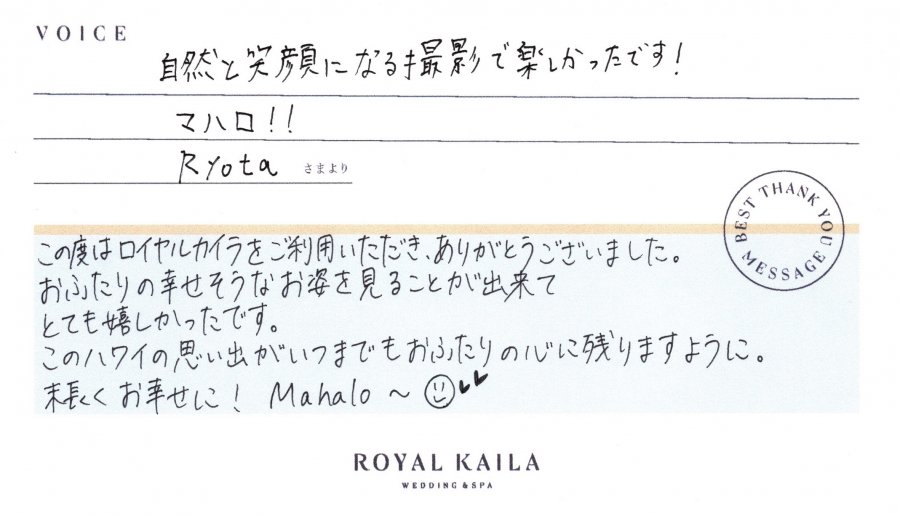 VOICE
自然と笑顔になる撮影で楽しかったです！
マハロ！！
Ryota さまより
BEST THANK YOU MESSAGE
この度はロイヤルカイラをご利用いただき、ありがとうございました。
おふたりの幸せそうなお姿を見ることが出来て
とても嬉しかったです。
このハワイの思い出がいつまでもおふたりの心に残りますように。
末長くお幸せに！ Mahalo ～
ROYAL KAILA
WEDDING & SPA